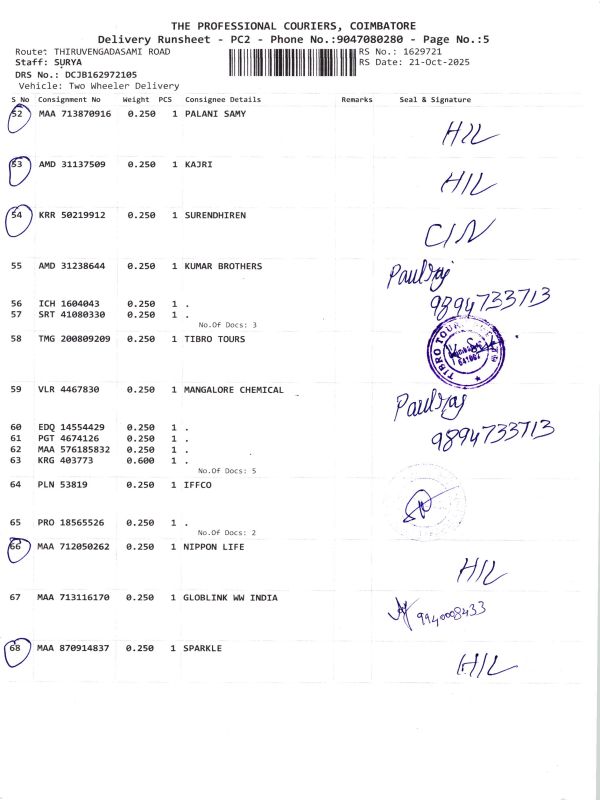 THE PROFESSIONAL COURIERS, COIMBATORE
Delivery Runsheet - PC2 - Phone No.:9047080280 - Page No.:5
Route: THIRUVENGADASAMI ROAD RS No.: 1629721
Staff: SURYA RS Date: 21-Oct-2025
DRS No.: DCJB162972105
Vehicle: Two Wheeler Delivery
S No Consignment No Weight PCS Consignee Details Remarks Seal & Signature
52 MAA 713870916 0.250 1 PALANI SAMY
H/L
53 AMD 31137509 0.250 1 KAJRI
H/L
54 KRR 50219912 0.250 1 SURENDHIREN
C/N
55 AMD 31238644 0.250 1 KUMAR BROTHERS Paulraj
9894733713
56 ICH 1604043 0.250 1 .
57 SRT 41080330 0.250 1 .
No.Of Docs: 3
58 TMG 200809209 0.250 1 TIBRO TOURS TIBRO TOUR
59 VLR 4467830 0.250 1 MANGALORE CHEMICAL Paulraj
9894733713
60 EDQ 14554429 0.250 1 .
61 PGT 4674126 0.250 1 .
62 MAA 576185832 0.250 1 .
63 KRG 403773 0.600 1 .
No.Of Docs: 5
64 PLN 53819 0.250 1 IFFCO
65 PRO 18565526 0.250 1 .
No.Of Docs: 2
66 MAA 712050262 0.250 1 NIPPON LIFE
H/L
67 MAA 713116170 0.250 1 GLOBLINK WW INDIA 9940008433
68 MAA 870914837 0.250 1 SPARKLE
H/L